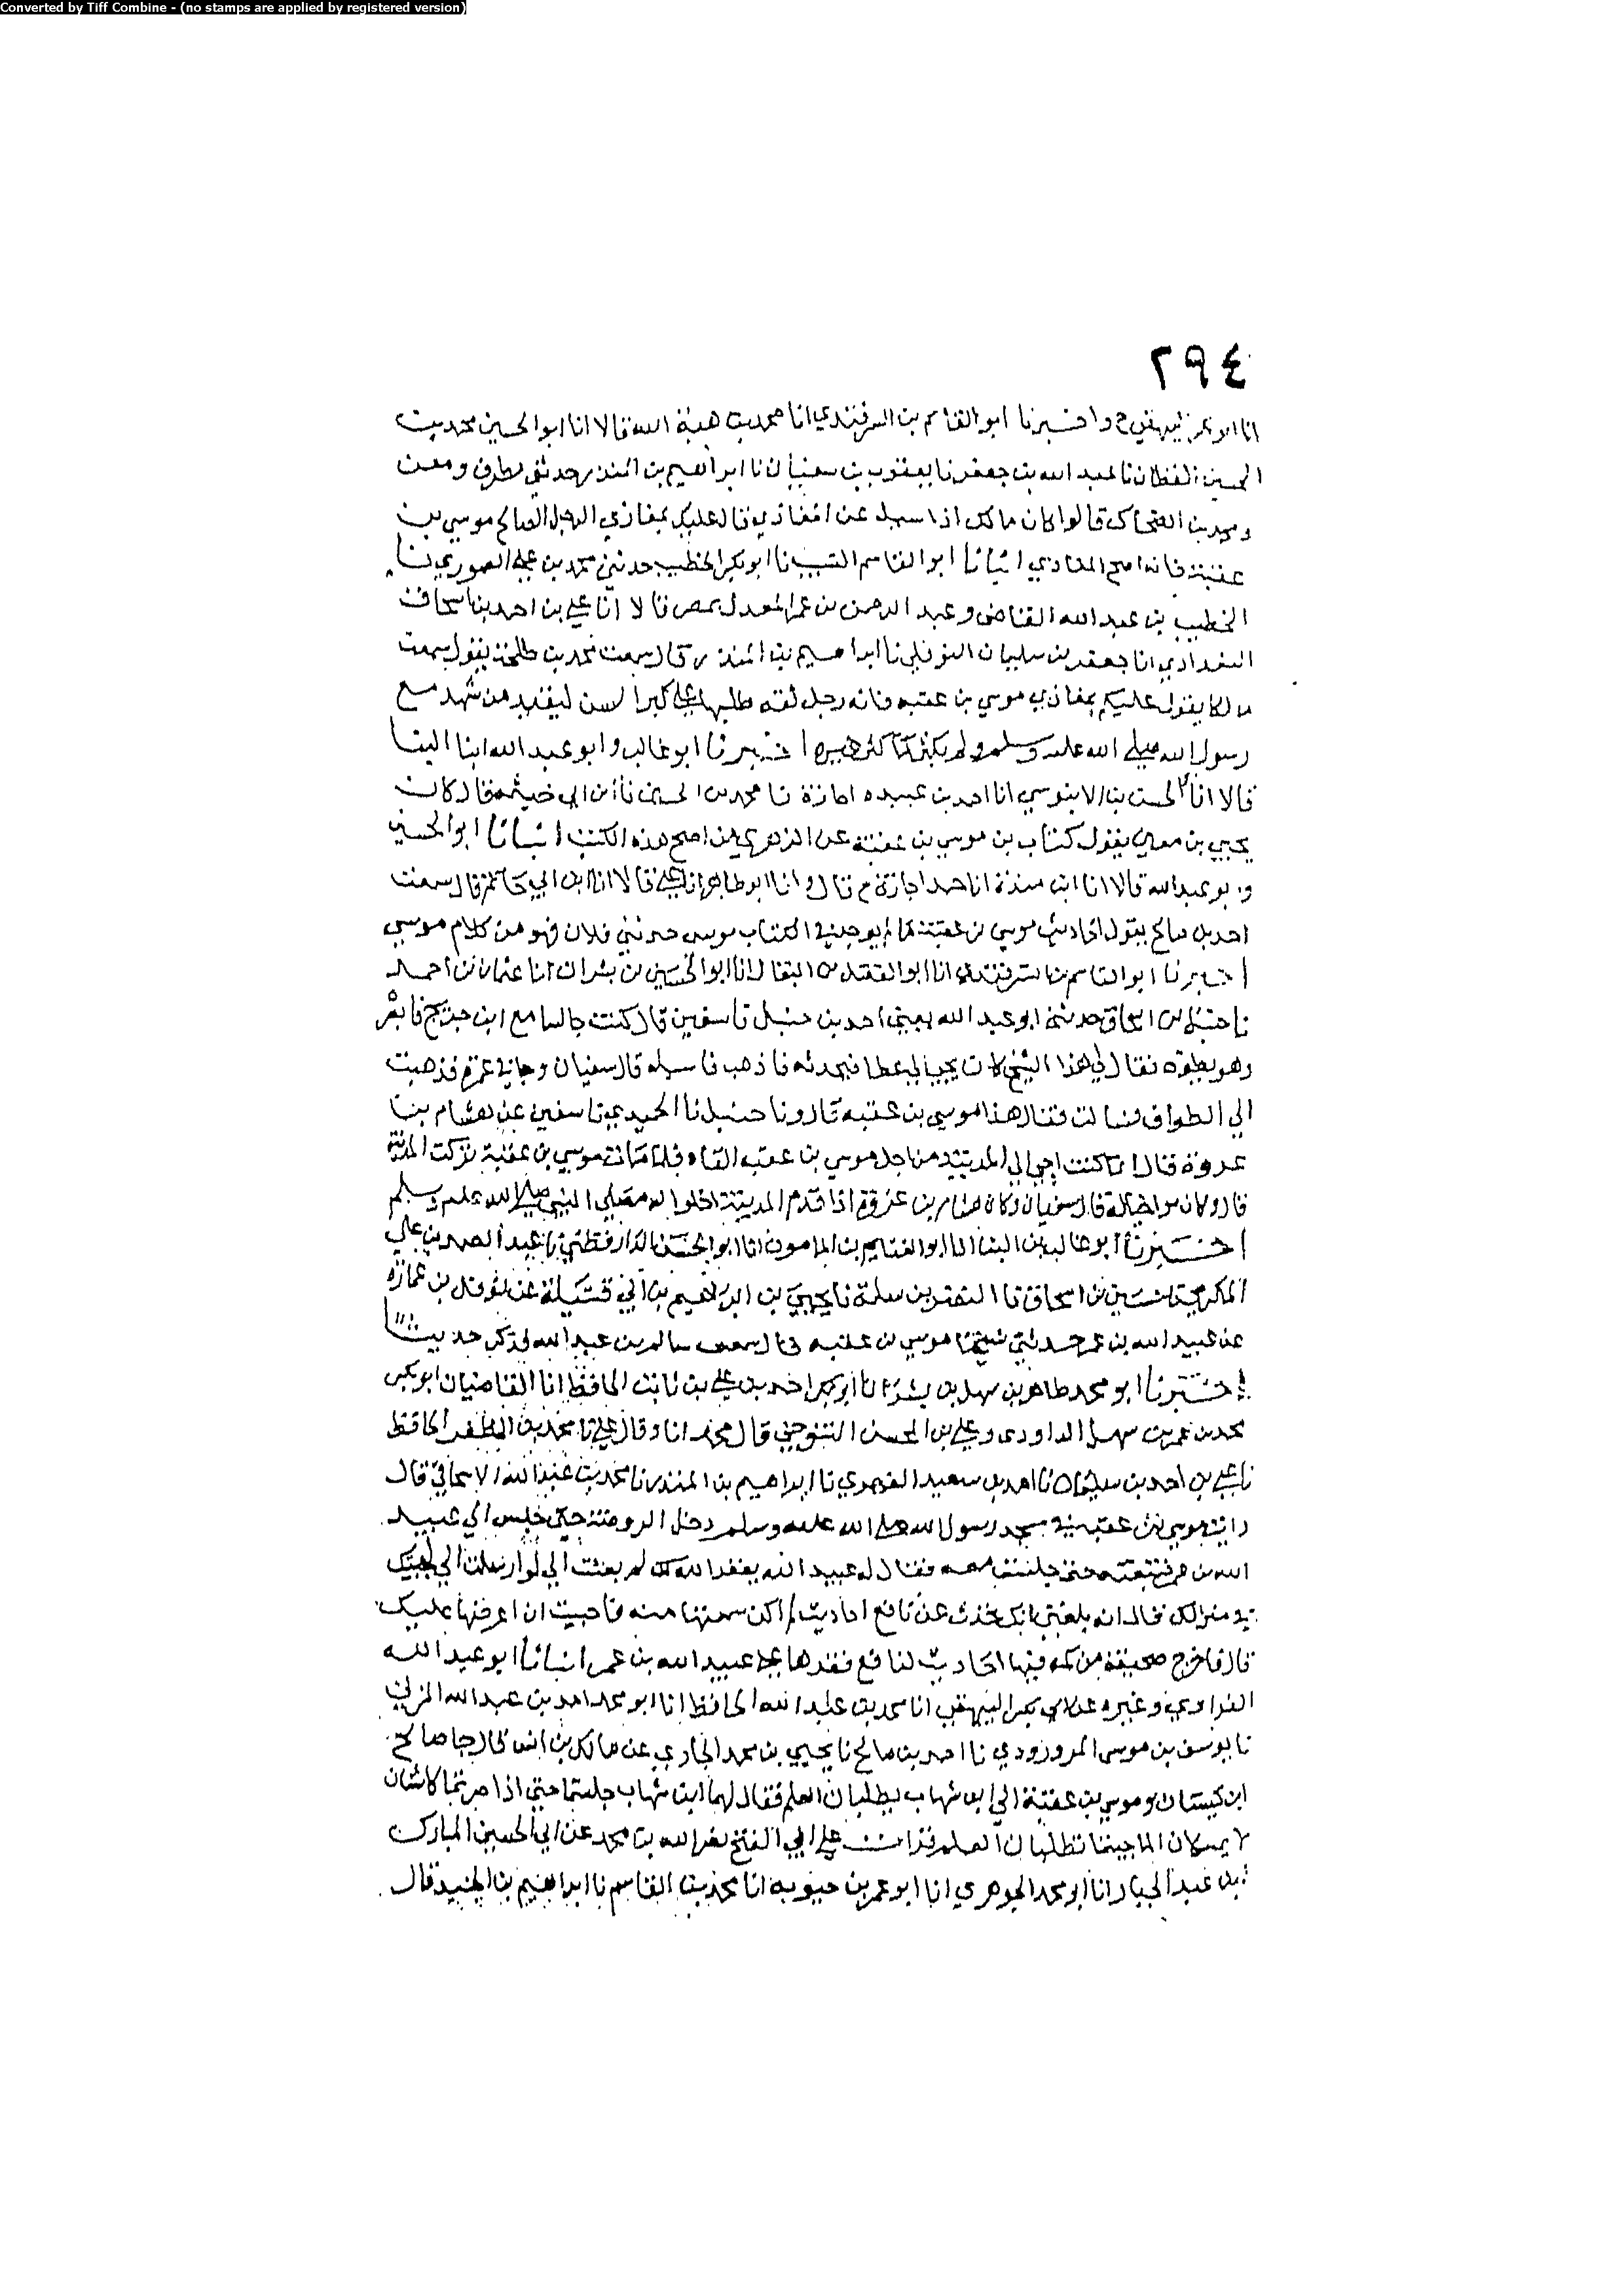 Converted by Tiff Combine - (no stamps are applied by registered version)
٢٩٤
انا ابو بكر البيهقي ح واخبرنا ابو القاسم بن السمرقندي انا محمد بن هبة الله قالا انا ابو الحسين محمد بن
الحسين القطان نا عبد الله بن جعفر نا يعقوب بن سفيان نا ابراهيم بن المنذر حدثني مطرف ومعن
ومحمد بن الضحاك قالوا كان مالك اذا سيل عن المغازي قال عليك بمغازي الرجل الصالح موسي بن
عقبة فانه اصح المغازي انبانا ابو القاسم النسيب نا ابو بكر الخطيب حدثني محمد بن علي الصوري نا
الخطيب بن عبد الله القاضي وعبد الرحمن بن عمر المعدل بمصر قالا انا علي بن احمد بن اسحاق
البغدادي انا جعفر بن سليمان النوفلي نا ابراهيم بن المنذر قال سمعت محمد بن طلحة يقول سمعت
مالكا يقول عليكم بمغازي موسي بن عقبه فانه رجل ثقه طلبها علي كبر السن ليقيد من شهد مع
رسول الله صلي الله عليه وسلم ولم يكثر كما كثر غيره اخبرنا ابو غالب وابو عبد الله ابنا البنا
قالا انا ابو الحسن بن الابنوسي انا احمد بن عبيده اجازة نا محمد بن الحسين نا ابن ابي خيثمه قال كان
يحيي بن معين يقول كتاب بن موسي بن عقبة عن الزهري من اصح هذه الكتب انبانا ابو الحسين
وابو عبد الله قالا انا ابن مندة انا حمد اجازة ح قال وانا ابو طاهر انا علي قالا انا ابن ابي حاتم قال سمعت
احمد بن صالح يقول احاديث موسي بن عقبة ما لم يوجد في الكتاب موسي حدثني فلان فهو من كلام موسي
اخبرنا ابو القاسم بن السمرقندي انا ابو الفضل بن البقال انا ابو الحسين بن بشران انا عثمان بن احمد
نا حنبل بن اسحاق حدثني ابو عبد الله يعني احمد بن حنبل نا سفين قال كنت جالسا مع ابن جريج فابصر
وهو يطوف فقال لي هذا الشيخ كان يجي الي عطا فيحدثه فاذهب فاسيله قال سفيان وجاني عمرو فذهبت
الي الطواف فسالت فقال هذا موسي بن عقبه قال ونا حنبل نا الحميدي نا سفين عن هشام بن
عروة قال انما كنت اجي الي المدينة من اجل موسي بن عقبه القاه فلما مات موسي بن عقبة تركت المدينة
قال وكان مواخيا له قال سفيان وكان هشام بن عروة اذا قدم المدينة اخلوا له مصلي النبي صلي الله عليه وسلم
اخبرنا ابو غالب بن البنا انا ابو الغنايم بن المامون انا ابو الحسن الدارقطني نا عبد الصمد بن علي
المكرمي نا حسين بن اسحاق نا النضر بن سلمة نا يحيي بن ابراهيم بن ابي قتيلة عن نوفل بن عمارة
عن عبيد الله بن عمر حدثني شيخنا موسي بن عقبه قال سمعت سالم بن عبد الله فذكر حديثا
اخبرنا ابو محمد طاهر بن سهل بن بشر انا ابو بكر احمد بن علي بن ثابت الحافظ انا القاضيان ابو بكر
محمد بن عمر بن سهل الداودي وعلي بن المحسن التنوخي قال محمد انا وقال علي نا محمد بن المظفر الحافظ
نا علي بن احمد بن سليمان نا احمد بن سعيد الفهري نا ابراهيم بن المنذر نا محمد بن عبد الله الاسحاقي قال
رايت موسي بن عقبة في مسجد رسول الله صلي الله عليه وسلم دخل الروضة حتي جلس الي عبيد
الله بن عمر فتبعته حتي جلست معه فقال له عبيد الله يغفر الله لك لم بعثت الي لو ارسلت الي لجيتك
في منزلك فقال انه بلغني انك تحدث عن نافع احاديث لم اكن سمعتها منه فاحببت ان اعرضها عليك
قال فاخرج صحيفة من كمه فيها احاديث لنافع فقراها علي عبيد الله بن عمر انبانا ابو عبد الله
الفراوي وغيره عن ابي بكر البيهقي انا محمد بن عبد الله الحافظ انا ابو محمد احمد بن عبد الله المزني
نا يوسف بن موسي المروروذي نا احمد بن صالح نا يحيي بن محمد الجاري عن مالك بن انس قال جا صالح
ابن كيسان وموسي بن عقبة الي ابن شهاب يطلبان العلم فقال لهما ابن شهاب جلستما حتي اذا صرتما كالشنان
لا يمسكان الما جيتما تطلبان العلم قرات علي ابي الفتح نصر الله بن محمد عن ابي الحسين المبارك
بن عبد الجبار انا ابو محمد الجوهري انا ابو عمر بن حيويه انا محمد بن القاسم نا ابراهيم بن الجنيد قال